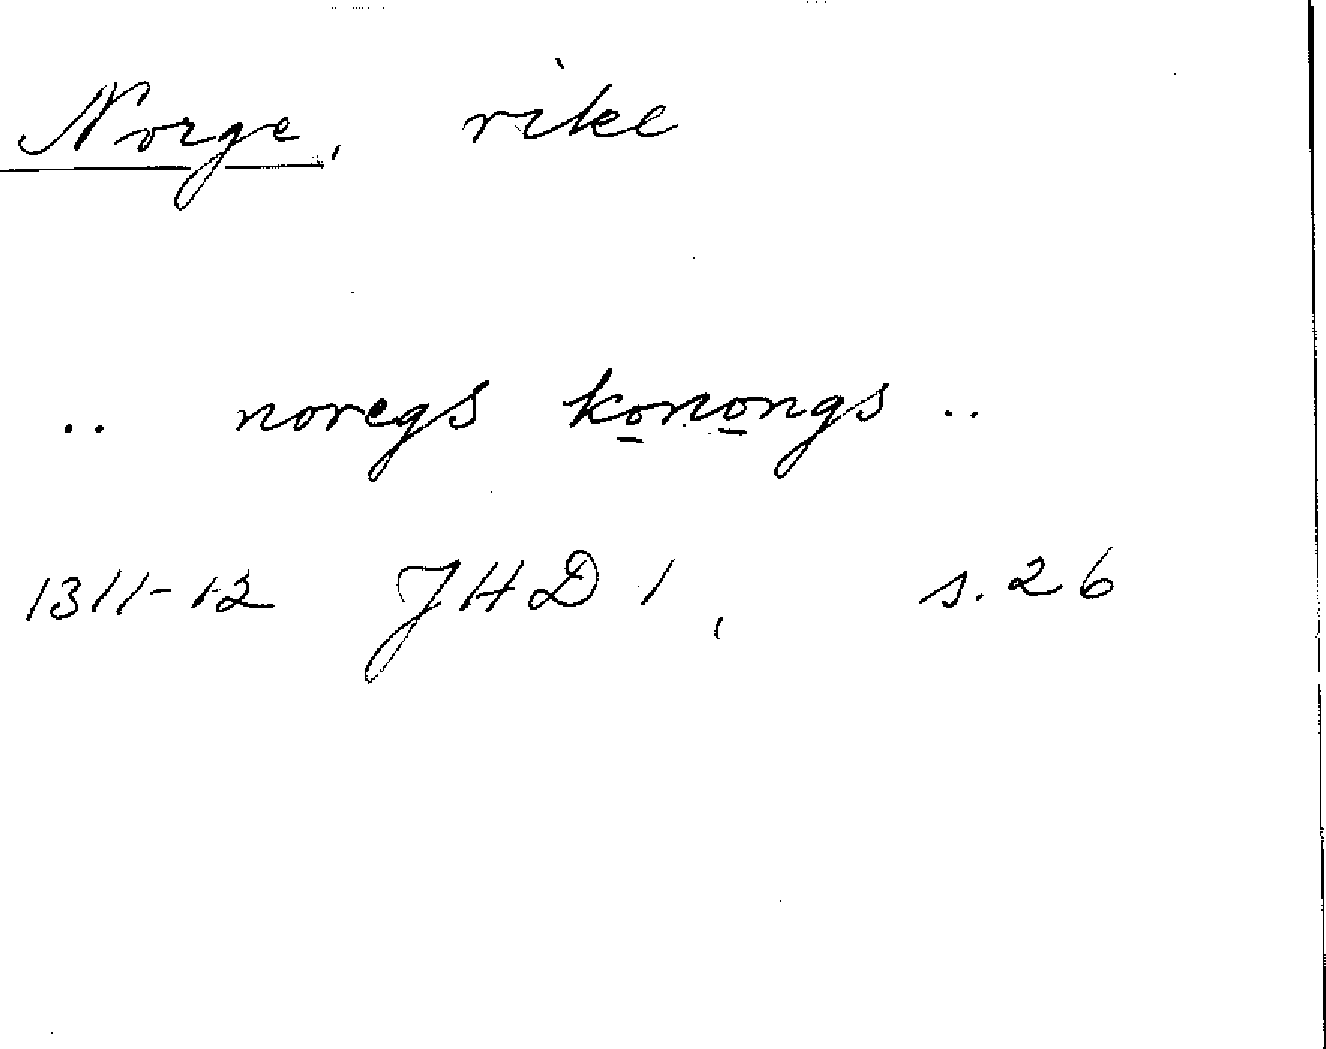 Norge, rike
.. noregs konongs ..
1311-12 JHD 1, s. 26